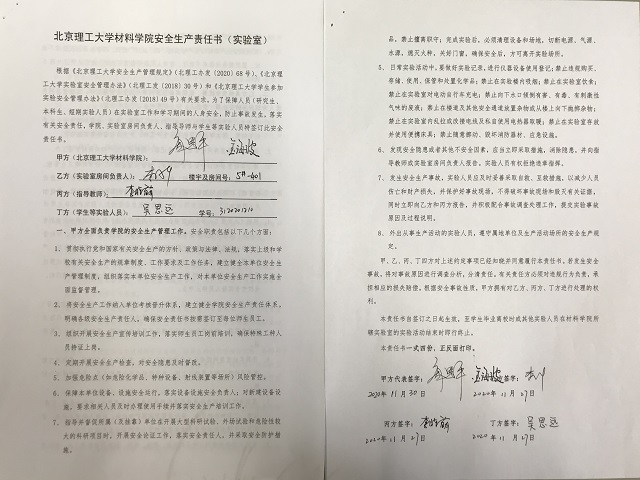 北京理工大学材料学院安全生产责任书（实验室）
根据《北京理工大学安全生产管理规定》（北理工办发〔2020〕68号）、《北京理
工大学实验室安全管理办法》（北理工发〔2018〕30号）和《北京理工大学学生参加
实验安全管理办法》（北理工发〔2018〕49号）有关要求，为了保障人员（研究生、
本科生、短期实验人员）在实验室工作和学习期间的人身安全，防止事故发生，落实
有关安全责任，学院、实验室房间负责人、指导导师与学生等实验人员特签订此安全
责任书。
甲方（北京理工大学材料学院）：
乙方（实验室房间负责人）： 楼宇及房间号：5#-401
丙方（指导教师）：
丁方（学生等实验人员）：吴思远 学号：3120201210
一、甲方全面负责学院的安全生产管理工作。安全职责包括以下几个方面：
1、贯彻执行党和国家有关安全生产的方针、政策与法律、法规，落实上级和学
校有关安全生产的规章制度、工作要求及工作任务，建立健全本单位安全生
产管理制度，组织落实本单位安全生产工作，对本单位安全生产工作实施全
面监督管理。
2、将安全生产工作纳入单位考核晋升体系，建立健全学院安全生产责任体系。
明确各级安全生产责任人，确保安全责任书按需签订至每位师生员工。
3、组织开展安全生产宣传培训工作，落实师生员工岗前培训，确保特殊工种人
员持证上岗。
4、定期开展安全生产检查，对安全隐患及时督改。
5、加强危险点（如危险化学品、特种设备、射线装置等场所）风险管控。
6、保障本单位设备、设施安全运行，落实设备设施安全负责人；对新建设备设
施，要求相关人员及时办理使用手续并落实安全生产培训工作。
7、指导并督促所属（及挂靠）单位在开展大型科研试验、外场试验和危险性较
大的科研项目时，开展安全论证工作，落实安全责任人，并采取安全防护措
施。
品，禁止擅离职守；完成实验后，必须清理设备和场地，切断电源、气源、
水源，熄灭火种，关好门窗，确保安全后，方可离开实验场所。
5、日常实验活动中，要做好实验记录，进行仪器设备使用登记；禁止违规购买、
存储、使用、保管和处置化学品；禁止在实验楼内吸烟；禁止在实验室饮食；
禁止在实验室对电动自行车充电；禁止向下水口倾倒有害、有毒、有刺激性
气味的废液；禁止在楼道及其他安全通道放置杂物或从楼上向下抛掷杂物；
禁止在实验室内乱拉或改接电线及私自使用电热器取暖；禁止在实验室存放
并使用便携床具；禁止随意挪动、毁坏消防器材、应急设施。
6、发现安全隐患或者其他不安全因素，应当立即采取措施，消除隐患，并向指
导教师或实验室房间负责人报告。实验人员有权拒绝违章指挥。
7、发生安全生产事故，实验人员应及时妥善采取自救、互救措施，以减少人员
伤亡和财产损失，并保护好事故现场，不得破坏事故现场和毁灭有关证据，
同时立即向乙方和丙方报告，并积极配合事故调查处理工作，提交实验事故
原因及过程说明。
8、外出从事生产活动的实验人员，遵守属地单位及生产活动场所的安全生产规
定。
甲、乙、丙、丁四方对上述约定事项已经知晓并同意履行本责任书，若发生安全
事故，将对事故原因进行调查分析，分清责任。有关责任方必须对违规行为负责，承
担相应的损失赔偿。根据安全事故性质，甲方拥有对乙方、丙方、丁方进行处理的权
利。
本责任书自签订之日起生效，至学生毕业离校时或其他实验人员在材料学院所
辖实验室的实验活动结束时即行终止。
本责任书一式四份，正反面打印。
甲方代表签字： 签字：
2020年11月30日 2020年11月27日
丙方签字： 丁方签字：吴思远
2020年11月27日 2020年11月27日